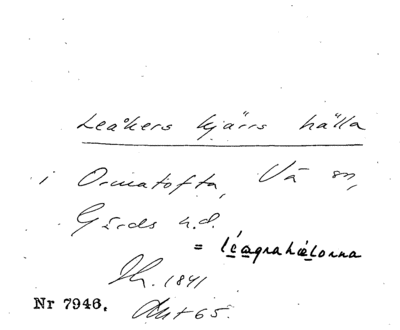 Leåkers kjärrs hälla
i Ormatofta, Vä sn,
Gärds h.d.
= léagnahælorna
1841
Nr 7946. Akt 65.